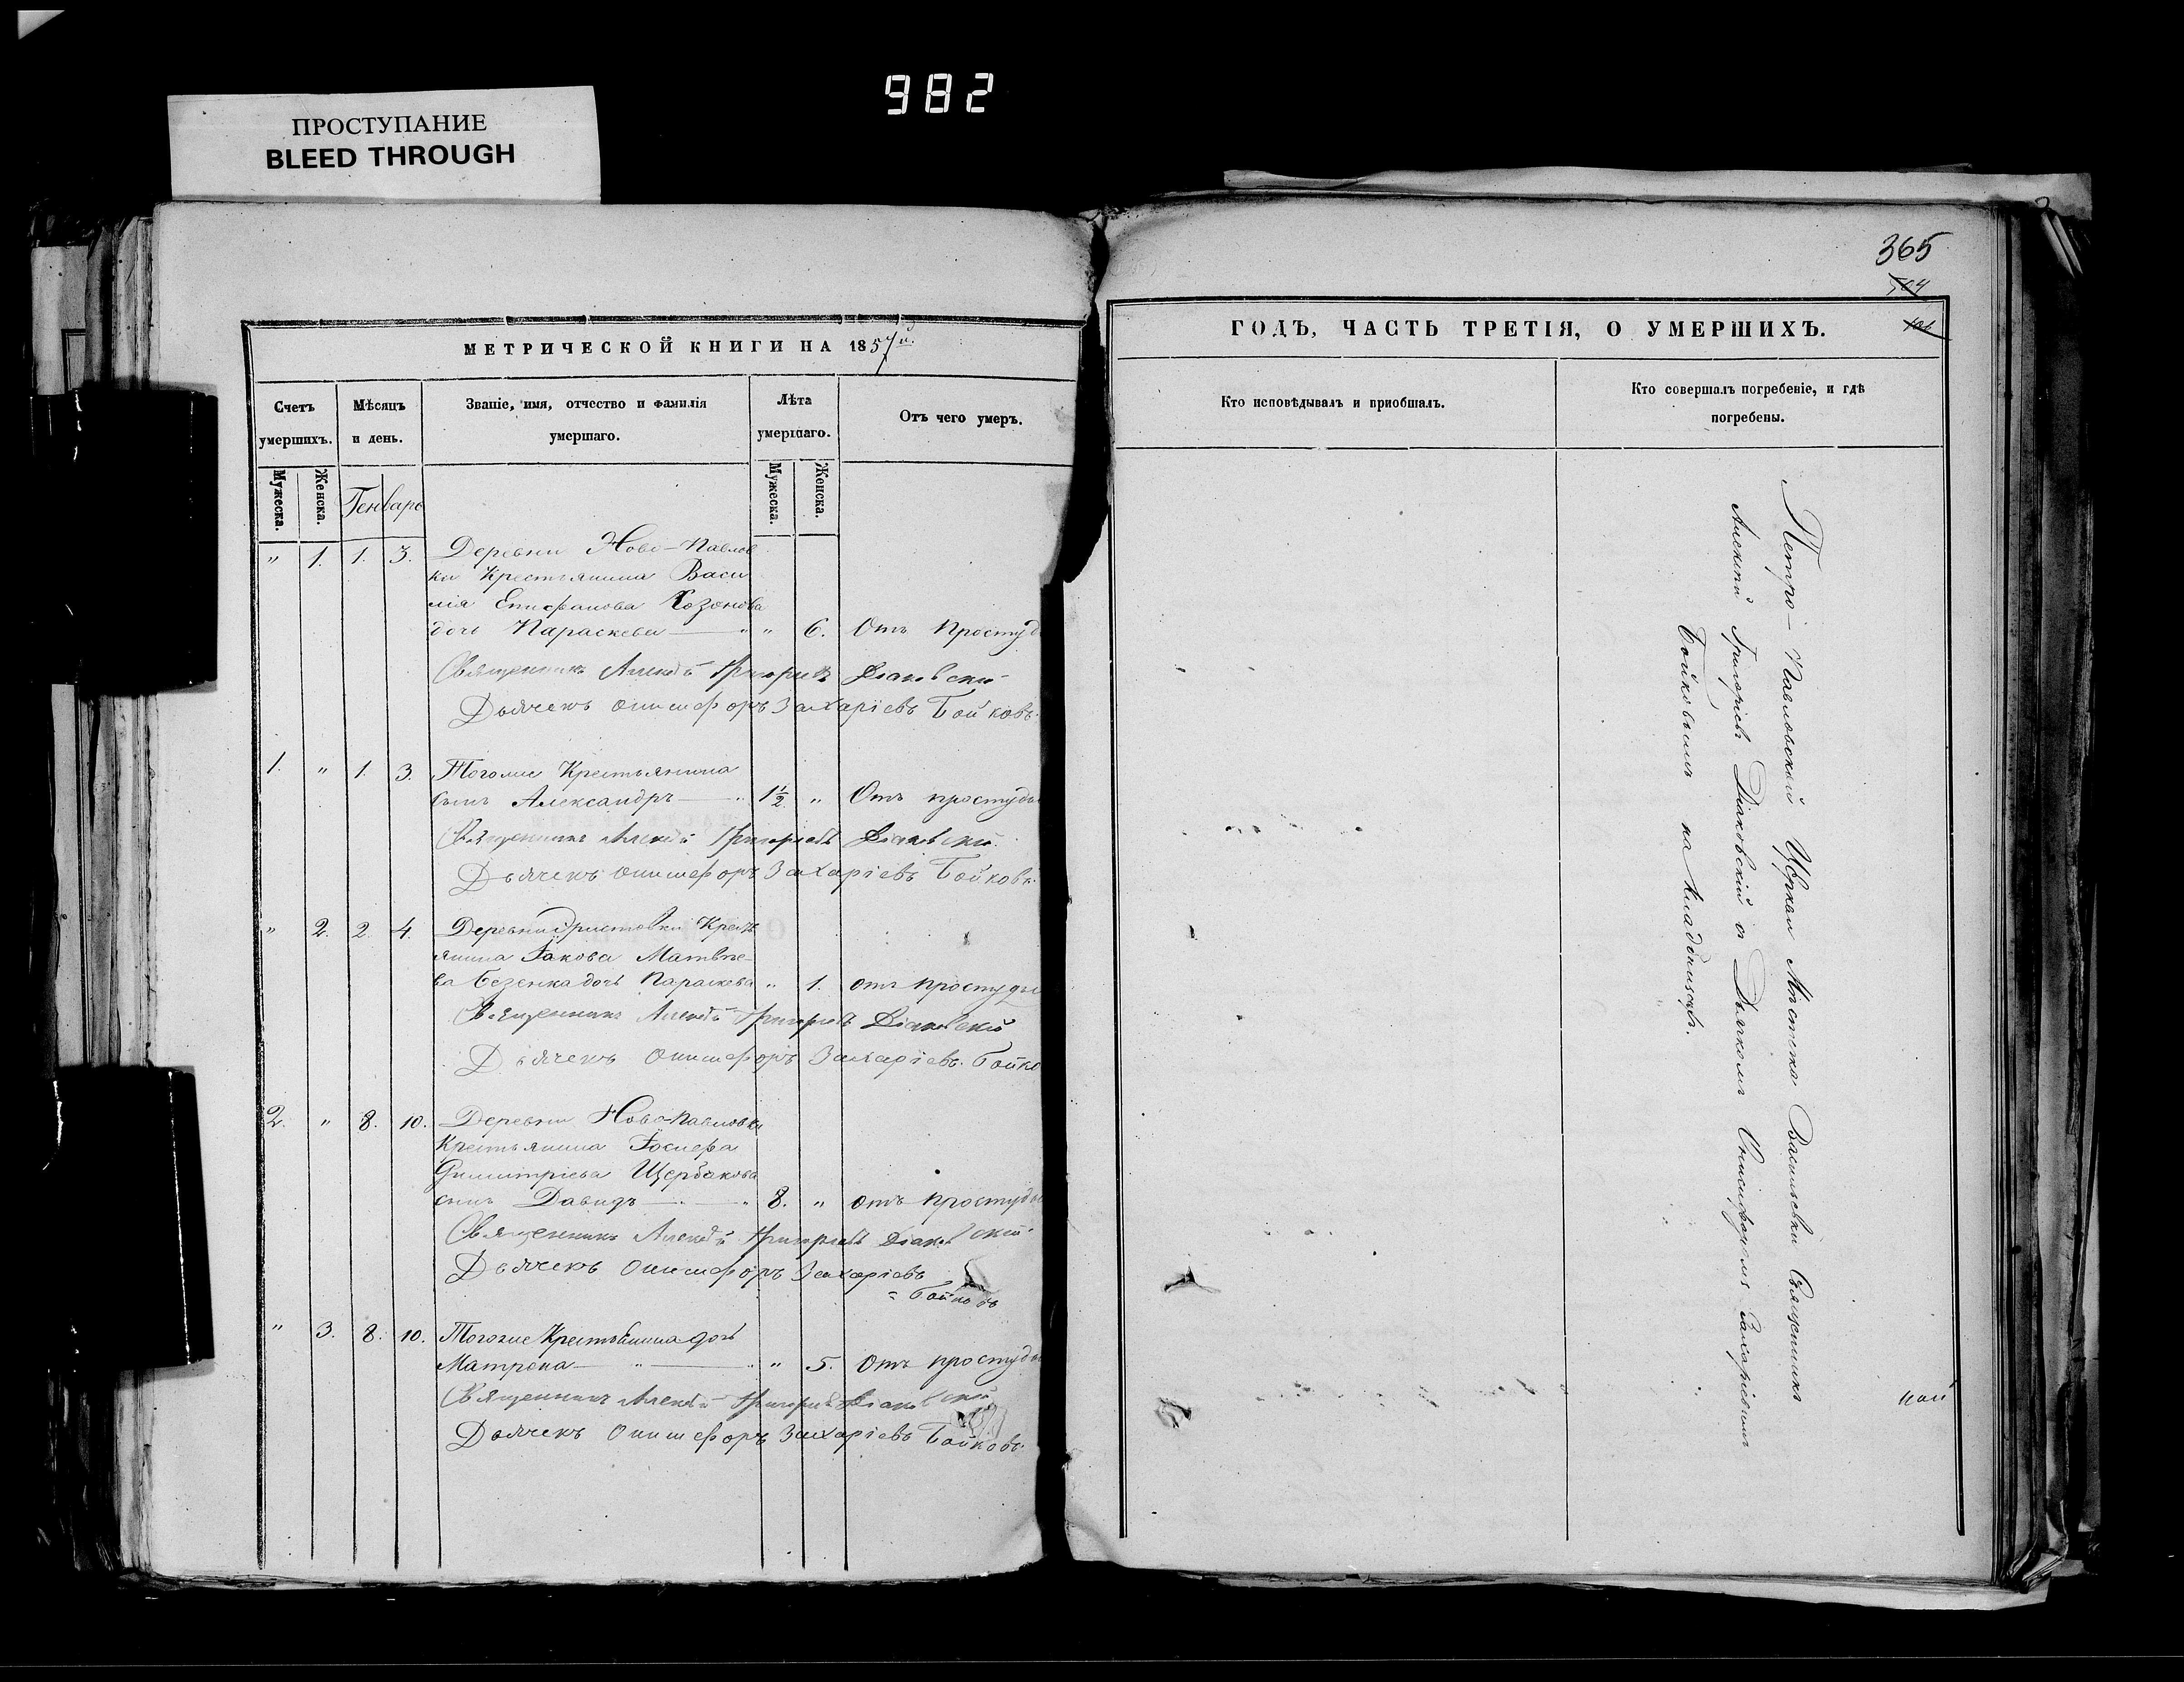 982
ПРОСТУПАНИЕ
BLEED THROUGH
МЕТРИЧЕСКОЙ КНИГИ НА 1857й.
Счетъ умершихъ.
Мѣсяцъ и день.
Званіе, имя, отчество и фамилія умершаго.
Лѣта умершаго.
Отъ чего умеръ.
Мужеска.
Женска.
Генварь
Мужеска.
Женска.
" 1. 1. 3. Деревни Ново-Павлов
ки Крестьянина Васи
лія Епифанова Козонова
дочь Параскева " " 6. Отъ простуд
Священникъ Алексѣй Григорьевъ Діаковскій
Дьячекъ Онисифоръ Захаріевъ Бойковъ.
1. " 1. 3. Тогоже Крестьянина
сынъ Александръ " 1½ " Отъ простуды
Священникъ Алексѣй Григорьевъ Діаковскій.
Дьячекъ Онисифоръ Захаріевъ Бойковъ.
" 2. 2. 4. Деревни Кресть
янина Іакова Матвѣе-
ва Безенка дочь Параскева " 1. отъ простуды
Священникъ Алексѣй Григорьевъ Діаковскій
Дьячекъ Онисифоръ Захаріевъ. Бойко
2. " 8. 10. Деревни Ново-Павловки
Крестьянина Іосифа
Димитріева Щербакова
сынъ Давидъ " 8. " отъ простуды
Священникъ Алексѣй Григорьевъ Діаковскій
Дьячекъ Онисифоръ Захаріевъ
= Бойковъ
" 3. 8. 10. Тогоже Крестьянина дочь
Матрона " " " 5. Отъ простуды
Священникъ Алексѣй Григорьевъ Діаковскій
Дьячекъ Онисифоръ Захаріевъ Бойковъ.
365
504
ГОДЪ, ЧАСТЬ ТРЕТІЯ, О УМЕРШИХЪ.
Кто исповѣдывалъ и пріобщалъ.
Кто совершалъ погребеніе, и гдѣ
погребены.
Петро-Павловской Церкви Мѣстечка Васильевки Священникъ
Алексѣй Григорьевъ Діаковскій съ Дьячкомъ Онисифоромъ Захаріевымъ
Бойковымъ на кладбищѣ.